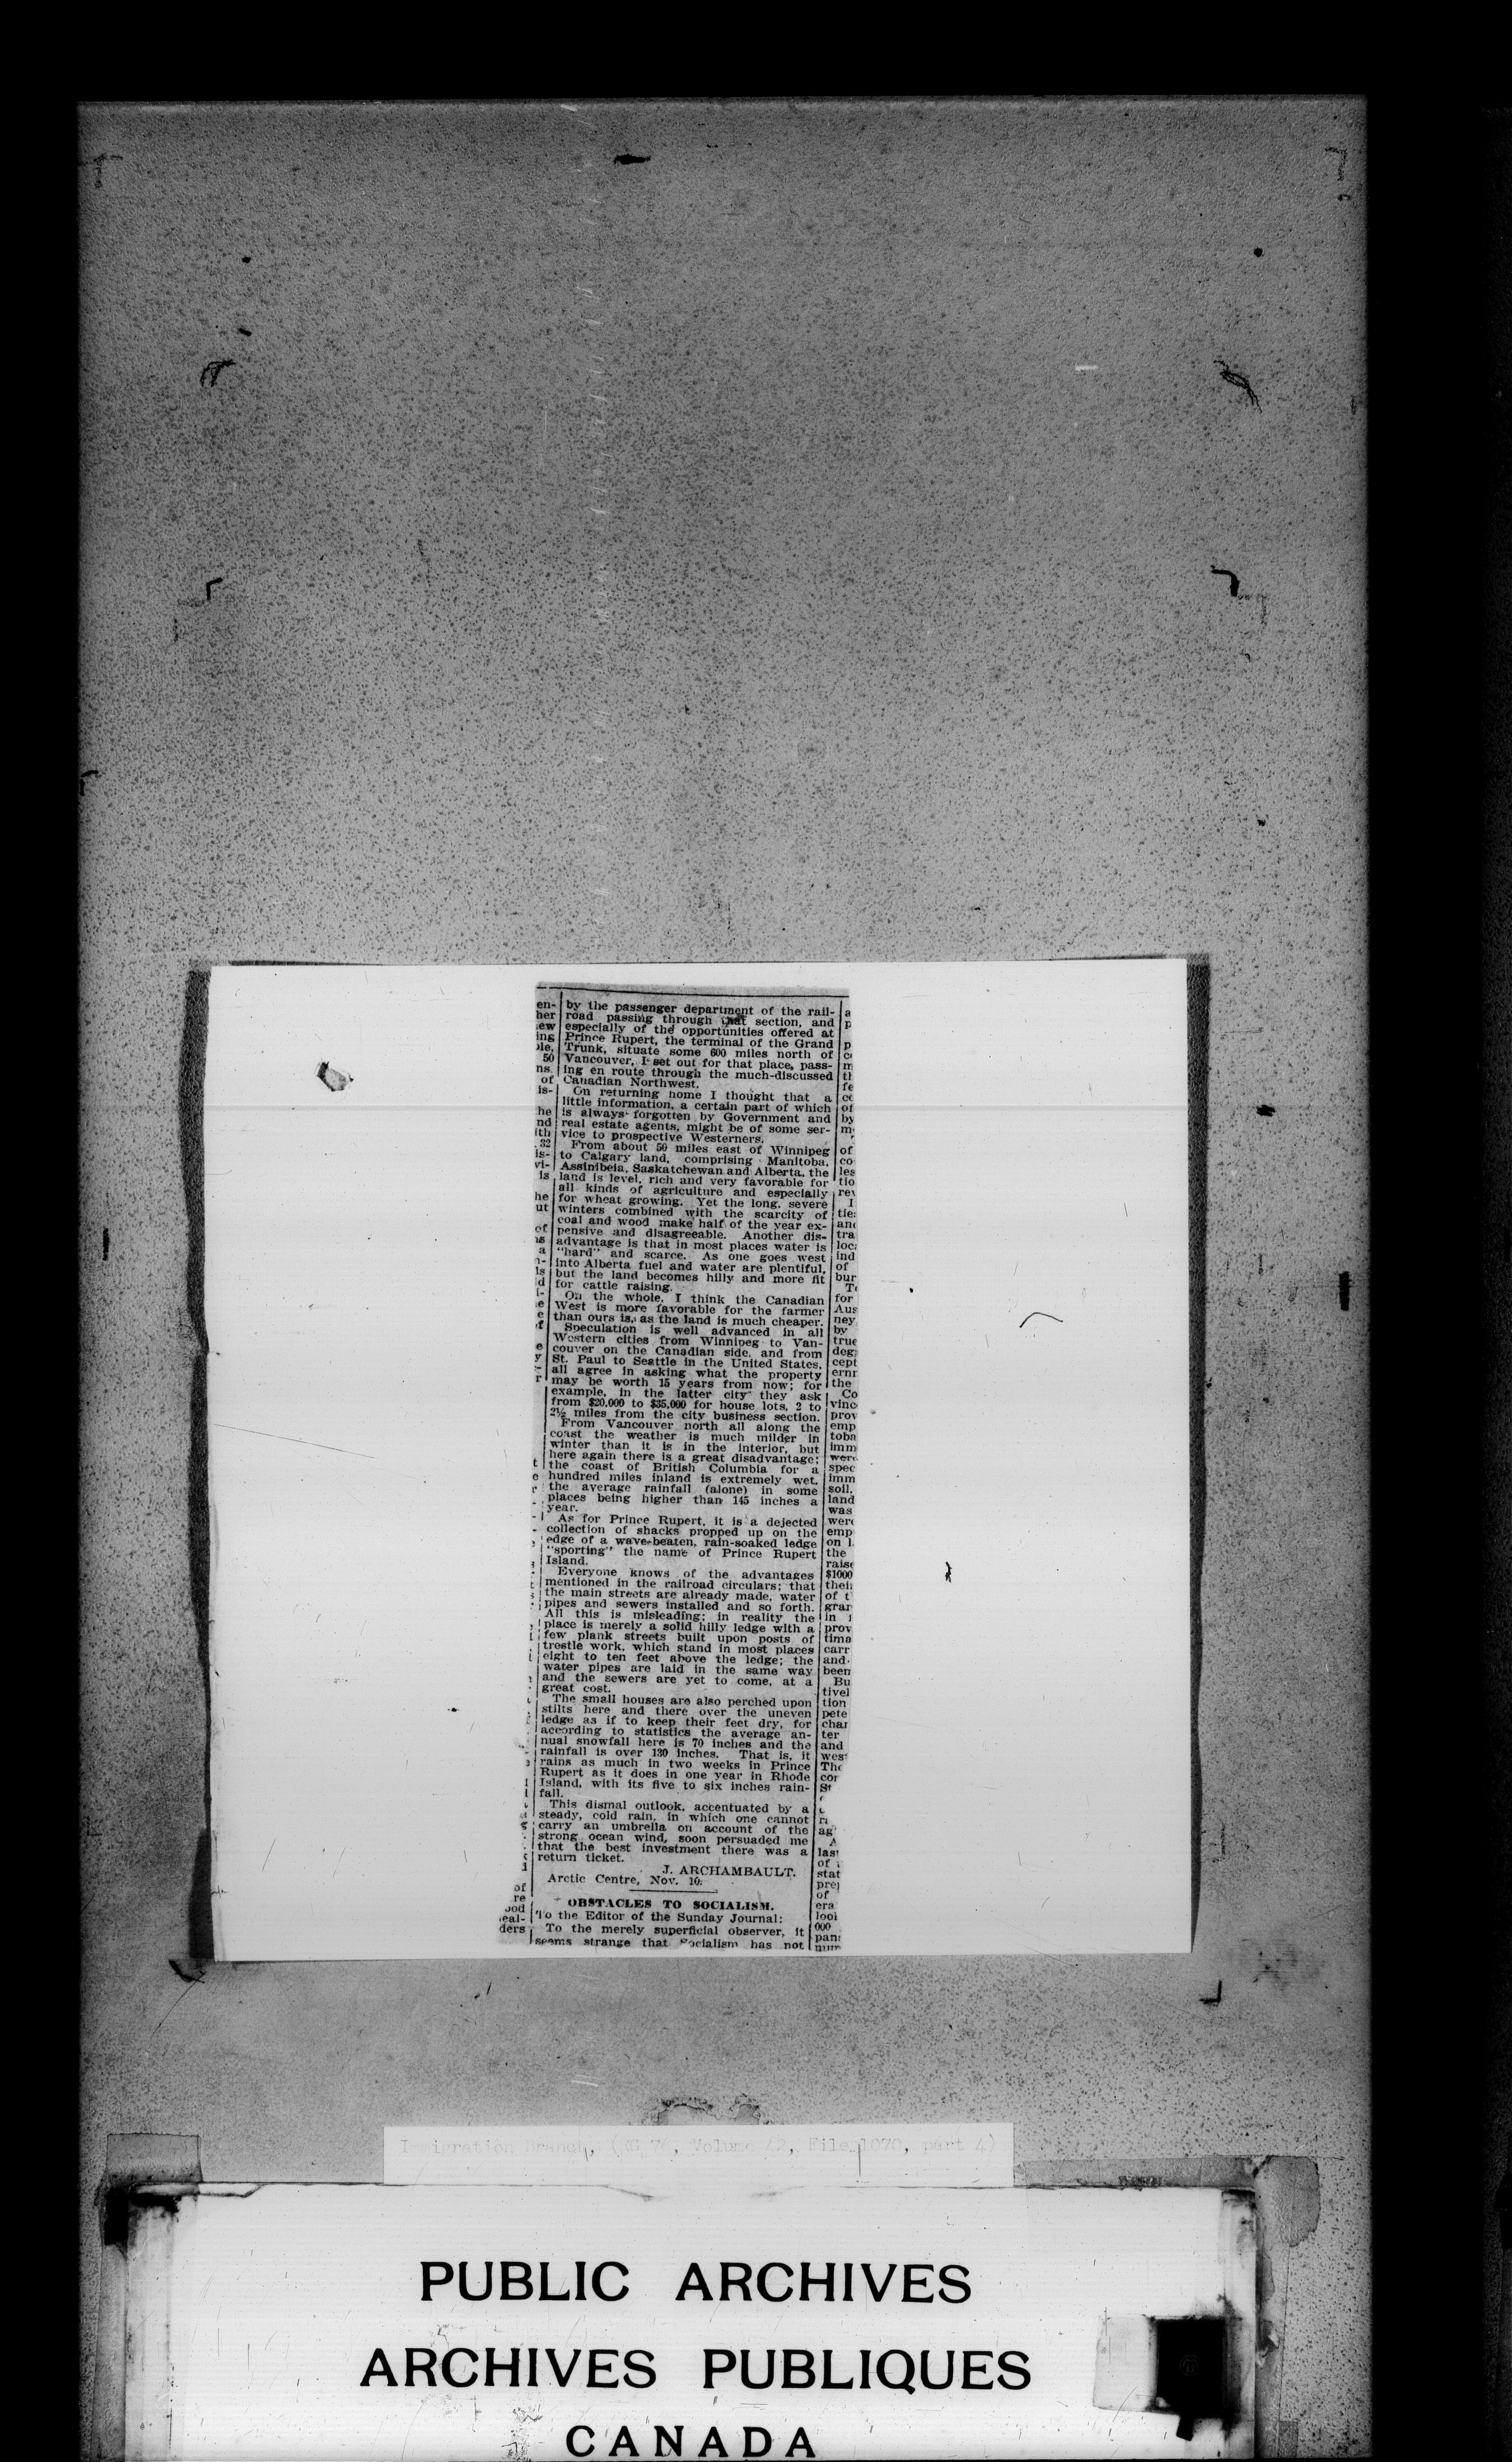 by the passenger department of the rail-
road passing through that section, and
especially of the opportunities offered at
Prince Rupert, the terminal of the Grand
Trunk, situate some 600 miles north of
Vancouver, I set out for that place, pass-
ing en route through the much-discussed
Canadian Northwest.
On returning home I thought that a
little information, a certain part of which
is always forgotten by Government and
real estate agents, might be of some ser-
vice to prospective Westerners.
From about 50 miles east of Winnipeg
to Calgary land, comprising Manitoba,
Assinibeia, Saskatchewan and Alberta, the
land is level, rich and very favorable for
all kinds of agriculture and especially
for wheat growing. Yet the long, severe
winters combined with the scarcity of
coal and wood make half of the year ex-
pensive and disagreeable. Another dis-
advantage is that in most places water is
"hard" and scarce. As one goes west
into Alberta fuel and water are plentiful,
but the land becomes hilly and more fit
for cattle raising.
On the whole, I think the Canadian
West is more favorable for the farmer
than ours is, as the land is much cheaper.
Speculation is well advanced in all
Western cities from Winnipeg to Van-
couver on the Canadian side, and from
St. Paul to Seattle in the United States,
all agree in asking what the property
may be worth 15 years from now; for
example, in the latter city they ask
from $20,000 to $35,000 for house lots, 2 to
2½ miles from the city business section.
From Vancouver north all along the
coast the weather is much milder in
winter than it is in the interior, but
here again there is a great disadvantage;
the coast of British Columbia for a
hundred miles inland is extremely wet,
the average rainfall (alone) in some
places being higher than 145 inches a
year.
As for Prince Rupert, it is a dejected
collection of shacks propped up on the
edge of a wave-beaten, rain-soaked ledge
"sporting" the name of Prince Rupert
Island.
Everyone knows of the advantages
mentioned in the railroad circulars; that
the main streets are already made, water
pipes and sewers installed and so forth.
All this is misleading; in reality the
place is merely a solid hilly ledge with a
few plank streets built upon posts of
trestle work, which stand in most places
eight to ten feet above the ledge; the
water pipes are laid in the same way
and the sewers are yet to come, at a
great cost.
The small houses are also perched upon
stilts here and there over the uneven
ledge as if to keep their feet dry, for
according to statistics the average an-
nual snowfall here is 70 inches and the
rainfall is over 130 inches. That is, it
rains as much in two weeks in Prince
Rupert as it does in one year in Rhode
Island, with its five to six inches rain-
fall.
This dismal outlook, accentuated by a
steady, cold rain, in which one cannot
carry an umbrella on account of the
strong ocean wind, soon persuaded me
that the best investment there was a
return ticket.
J. ARCHAMBAULT.
Arctic Centre, Nov. 10.
OBSTACLES TO SOCIALISM.
To the Editor of the Sunday Journal:
To the merely superficial observer, it
seems strange that Socialism has not
Immigration Branch, (RG 76, Volume 42, File 1070, part 4)
PUBLIC ARCHIVES
ARCHIVES PUBLIQUES
CANADA